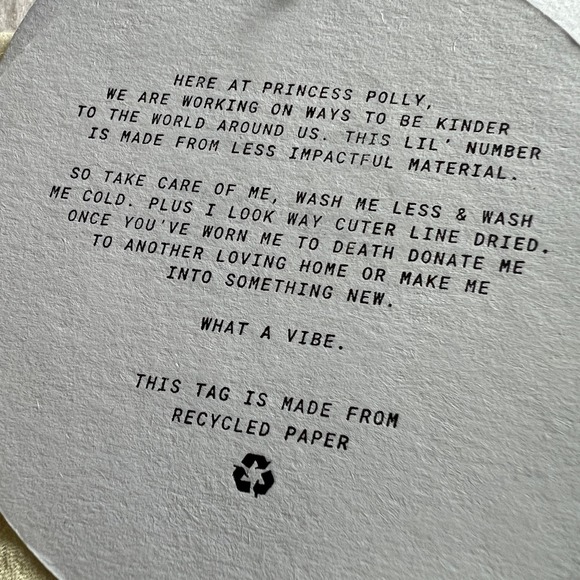 HERE AT PRINCESS POLLY,
WE ARE WORKING ON WAYS TO BE KINDER
TO THE WORLD AROUND US. THIS LIL' NUMBER
IS MADE FROM LESS IMPACTFUL MATERIAL.
SO TAKE CARE OF ME, WASH ME LESS & WASH
ME COLD. PLUS I LOOK WAY CUTER LINE DRIED.
ONCE YOU'VE WORN ME TO DEATH DONATE ME
TO ANOTHER LOVING HOME OR MAKE ME
INTO SOMETHING NEW.
WHAT A VIBE.
THIS TAG IS MADE FROM
RECYCLED PAPER